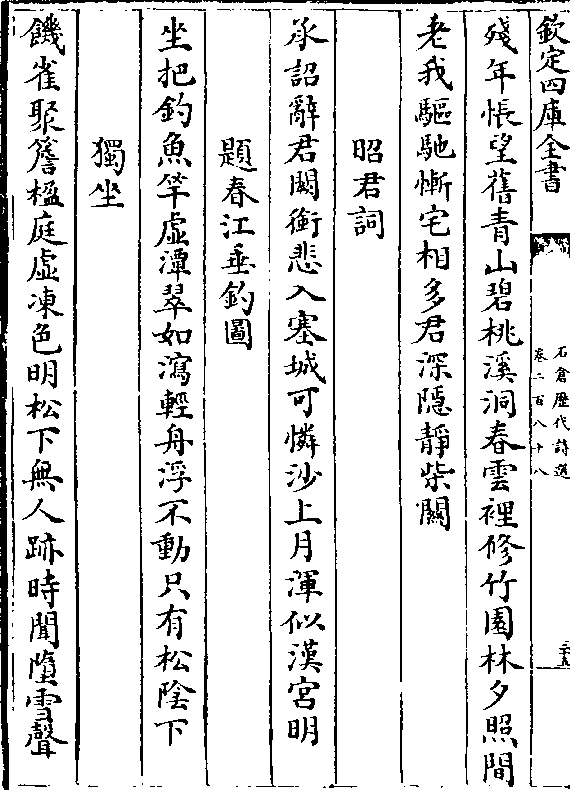 欽定四庫全書
石倉歷代詩選
卷二百八十八
殘年悵望舊青山碧桃溪洞春雲裡修竹園林夕照間
老我驅馳慚宅相多君深隱靜柴關
昭君詞
承詔辭君闕銜悲入塞城可憐沙上月渾似漢宮明
題春江垂釣圖
坐把釣魚竿虛潭翠如瀉輕舟浮不動只有松陰下
獨坐
饑雀聚簷楹庭虛凍色明松下無人跡時聞墮雪聲